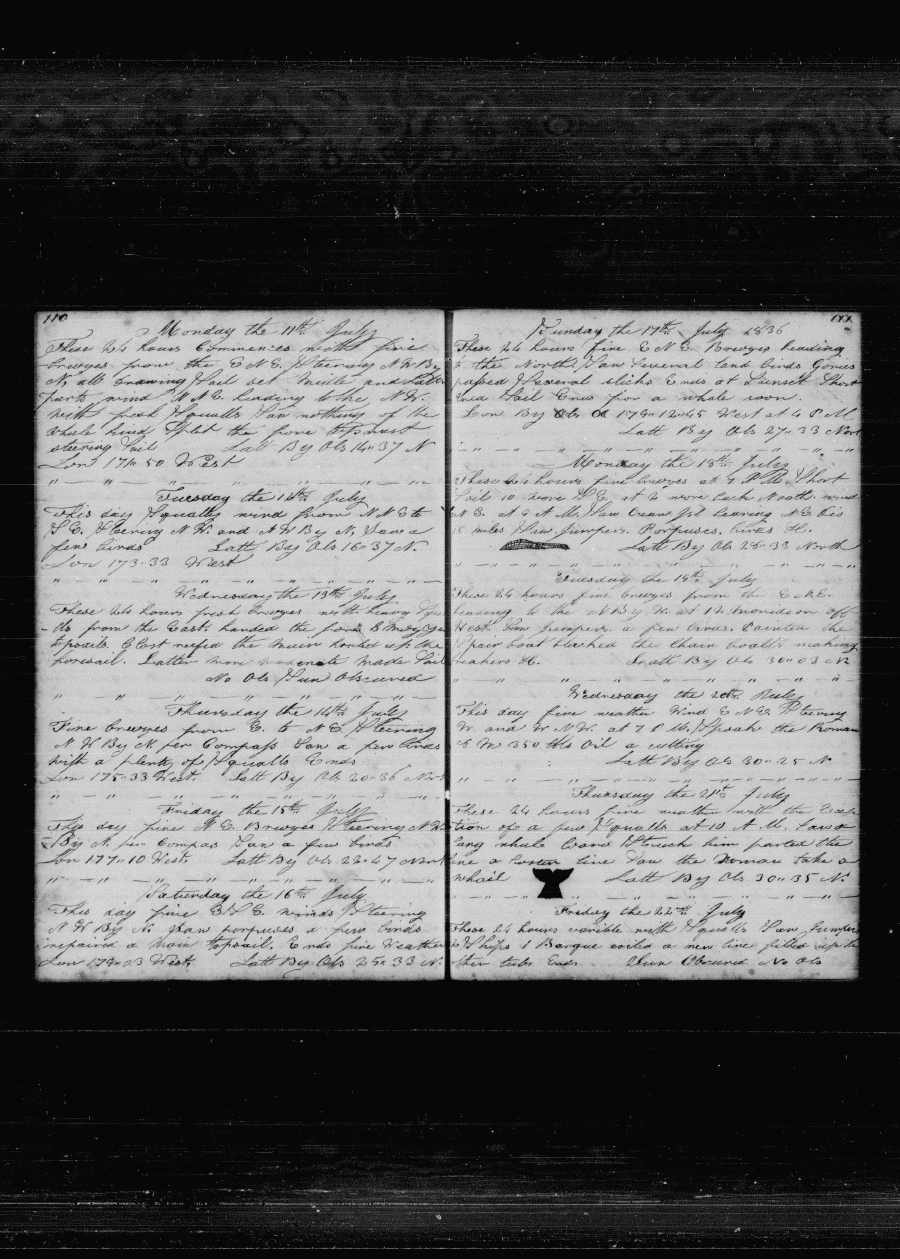 110
Monday the 11th July
These 24 hours Commences with fine
breezes from the E N E Steering N W By
N, all drawing Sail set Midle and latter
parts wind N N E heading to the N. W.
with fresh Squalls Saw nothing of the
whale kind Split the fore topmast
steering Sail Latt By Obs 14"37 N
Lon 171"50 West
Tuesday the 12th July
This day Squally wind from N N E to
S. E. Steering N W. and N W By N, Saw a
few birds Latt By Obs 16"37 N.
Lon 173"33 West
Wednesday the 13th July
These 24 hours fresh breezes with heavy
from the East. handed the fore &
topsails. Clost reefed the Main hauled up the
foresail. Latter more moderate made Sail
No Obs Sun Obscured
Thursday the 14th July
Fine breezes from E. to N E, Steering
N W By N. per Compass Saw a few birds
with a plenty of Squalls Ends
Lon 175"33 West. Latt By Obs 20"36 North
Friday the 15th July
This day fine N. E. Breezes Steering N W
By N. per Compas Saw a few birds
Lon 177"10 West. Latt By Obs 22"47 North
Saturday the 16th July
This day fine E S E winds Steering
N W By N. Saw porpuses a few birds
repaired a main topsail. Ends fine Weather
Lon 179"03 West Latt By Obs 25"33 N.
111
Sunday the 17th July 1836
These 24 hours fine E N E. Breezes heading
to the North. Saw Several land birds Gonies
passed Several slicks Ends at Sunset Short
Sail Ends for a whale soon.
Lon By Obs 179"12"45 West at 4 P M
Latt By Obs 27"33 North
Monday the 18th July
These 24 hours fine breezes at 7 P M Short
Sail 10 wore S E, at 2 wore back North. wind
N E. at 9 A M, Saw bearing N E Dis
miles Saw Jumpers. Porpuses. birds &c.
Latt By Obs 28"33 North
Tuesday the 19th July
These 24 hours fine breezes from the E N E.
heading to the N By W. at 12 Meridean off
West. Saw Jumpers. a few birds. Painted the
Spair boat blacked the Chain boalts making
&c. Latt By Obs 30"03 N
Wednesday the 20th July
This day fine weather Wind E N E. Steering
W. and W N W. at 7 P M, Spoak the Roman
of N 350 bbls Oil a cutting
Latt By Obs 30"25 N
Thursday the 21st July
These 24 hours fine weather with the Excep
tion of a few Squalls at 10 A. M. Saw a
whale Struck him parted the
line a line Saw the Roman take a
whail Latt By Obs 30"35 N.
Friday the 22nd July
These 24 hours varible with Squalls Saw Jumpers
Ships 1 Barque coiled a new line fitted up the
ther tubs Ends Sun Obscured No Obs